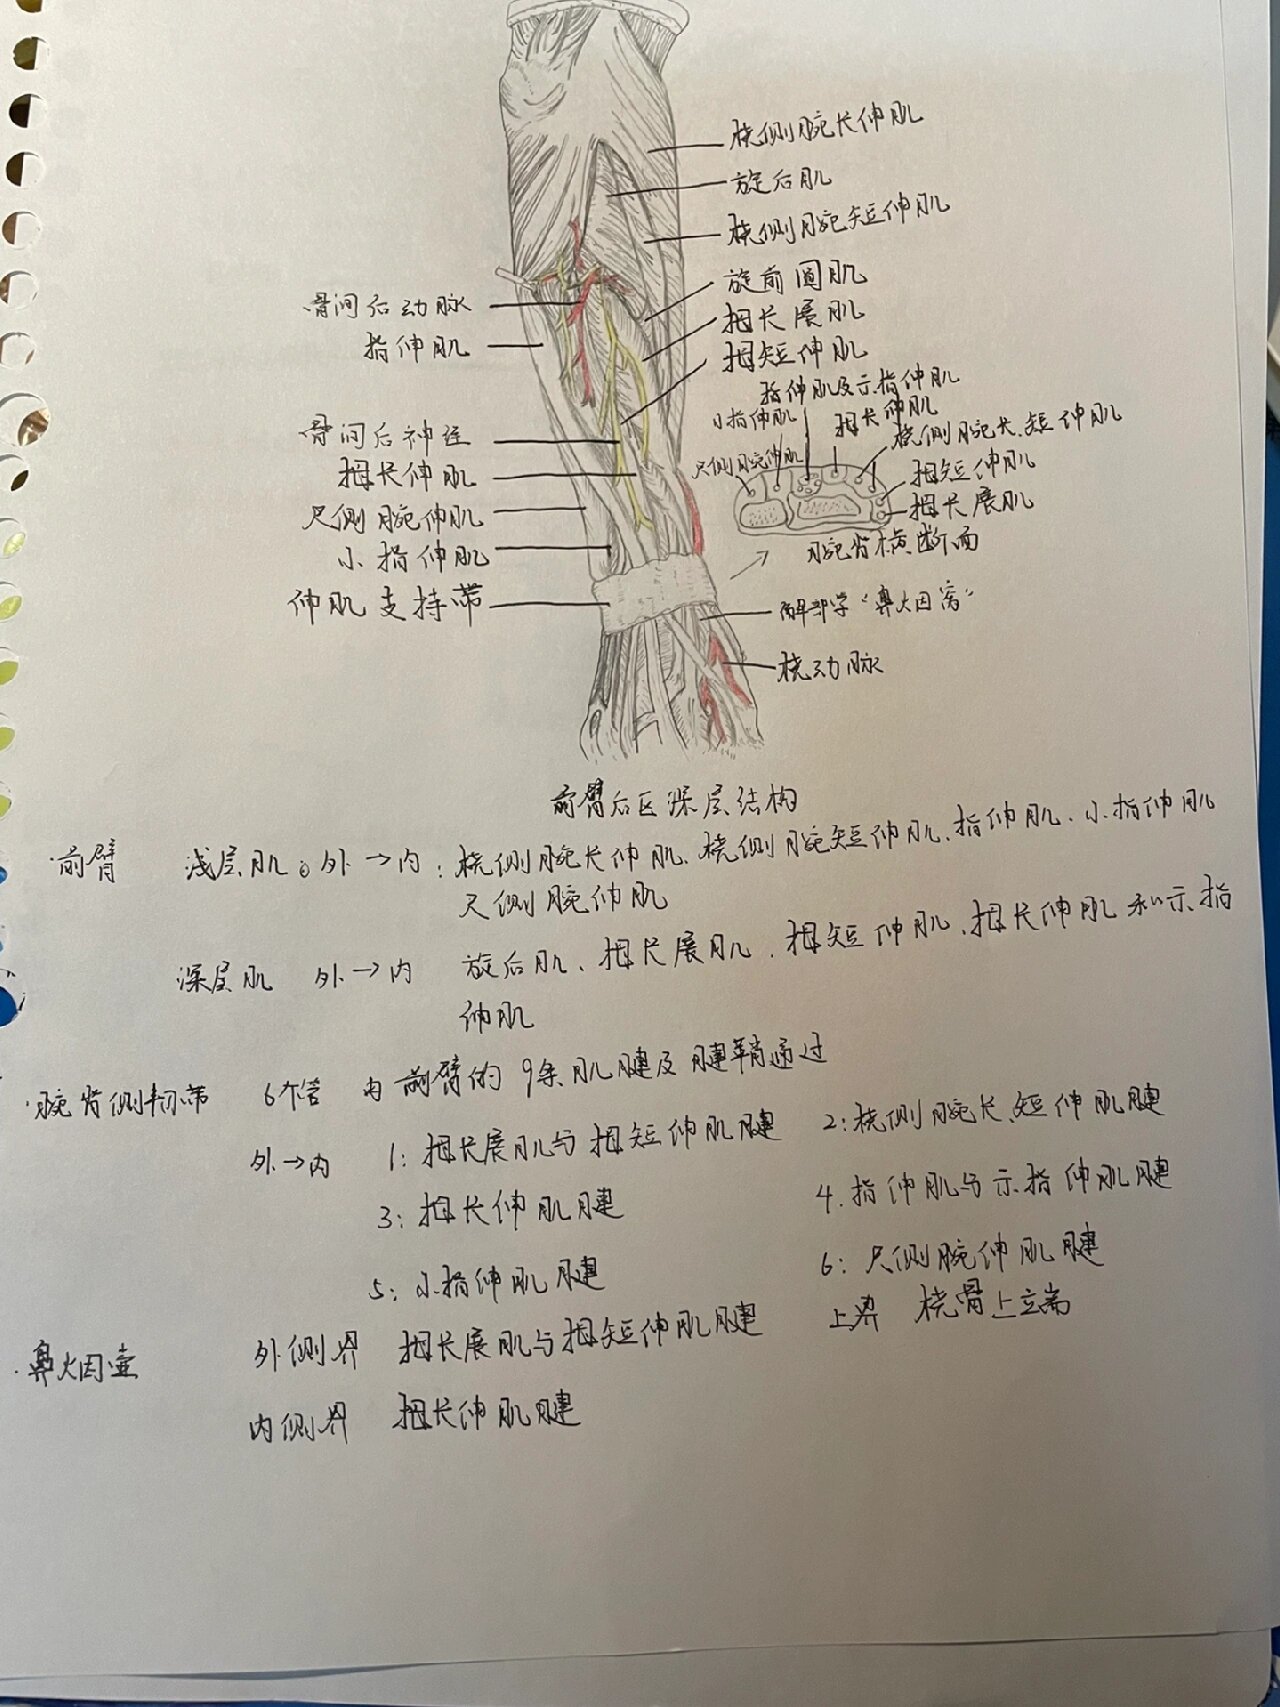 桡侧腕长伸肌
旋后肌
桡侧腕短伸肌
旋前圆肌
拇长展肌
拇短伸肌
骨间后动脉
指伸肌
骨间后神经
拇长伸肌
尺侧腕伸肌
小指伸肌
伸肌支持带
指伸肌及示指伸肌
小指伸肌
拇长伸肌
桡侧腕长、短伸肌
尺侧腕伸肌
拇短伸肌
拇长展肌
腕背横断面
解剖学“鼻烟窝”
桡动脉
前臂后区深层结构
·前臂 浅层肌 外→内:桡侧腕长伸肌、桡侧腕短伸肌、指伸肌、小指伸肌
尺侧腕伸肌
深层肌 外→内 旋后肌、拇长展肌、拇短伸肌、拇长伸肌和示指
伸肌
·腕背侧韧带 6个管 内前臂的9条肌腱及腱鞘通过
外→内 1:拇长展肌与拇短伸肌腱 2:桡侧腕长、短伸肌腱
3:拇长伸肌腱 4.指伸肌与示指伸肌腱
5:小指伸肌腱 6:尺侧腕伸肌腱
·鼻烟壶 外侧界 拇长展肌与拇短伸肌腱 上界 桡骨上立端
内侧界 拇长伸肌腱